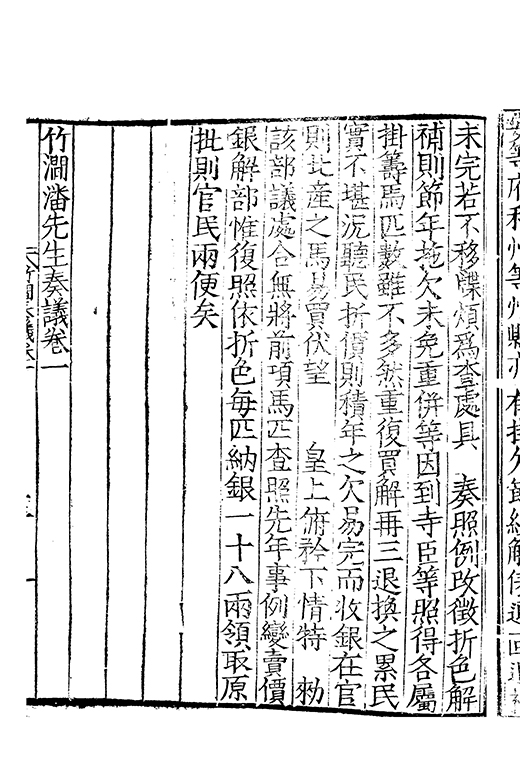 未完若不移牒煩爲查處具　奏照例改徵折色解
補則節年拖欠未免重併等因到寺臣等照得各屬
掛籌馬匹數雖不多然重復買解再三退換之累民
實不堪況聽民折價則積年之欠易完而收銀在官
則此產之馬易買伏望　皇上俯衿下情特　勑
該部議處合無將前項馬匹查照先年事例變賣價
銀解部惟復照依折色每匹納銀一十八兩領取原
批則官民兩便矣
竹澗潘先生奏議卷一